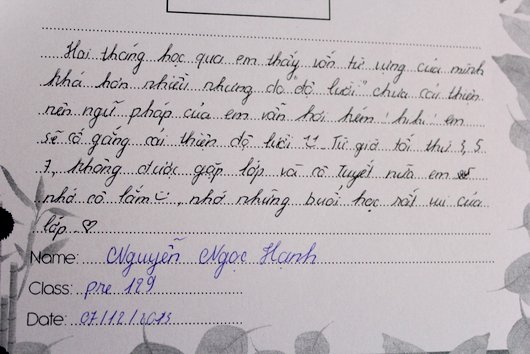 Hai tháng học qua em thấy vốn từ vựng của mình
khá hơn nhiều nhưng do "độ lười" chưa cải thiện
nên ngữ pháp của em vẫn hơi kém! hihi! em
sẽ cố gắng cải thiện độ lười Từ giờ tối thứ 3, 5
7, không được gặp lớp và cô Tuyết nữa em sẽ
nhớ cô lắm, nhớ những buổi học rất vui của
lớp ♡
Name: Nguyễn Ngọc Hạnh
Class: pre 129
Date: 07/12/2013